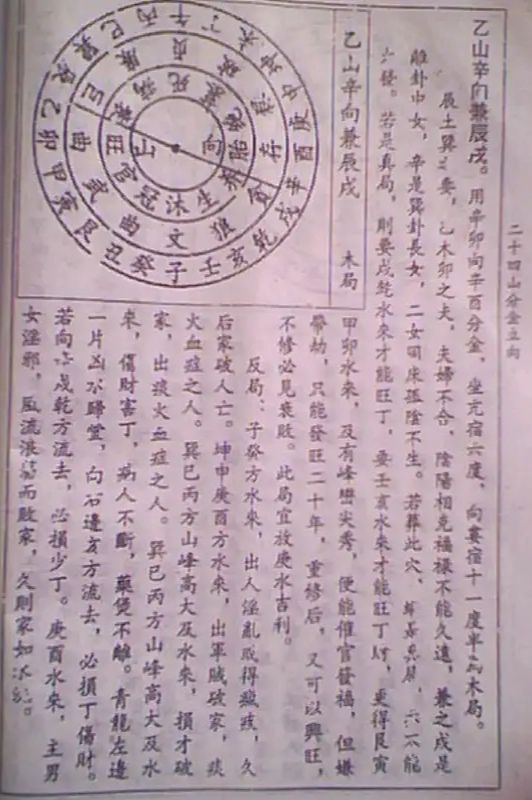 二十四山分金立向
乙山辛向兼辰戌。用辛卯向辛酉分金，坐亢宿六度，向婁宿十一度半為木局。
辰土巽之妻，乙木卯之夫，夫婦不合，陰陽相克福祿不能久遠，兼之戌是
離卦中女，辛是巽卦長女，二女同床孤陰不生。若葬此穴，
發。若是真局，則要戌乾水來才能旺丁，要壬亥水來才能旺丁財，更得艮寅
乙山辛向兼辰戌 木局
甲卯水來，及有峰巒尖秀，便能催官發福，但嫌
帶劫，只能發旺二十年，重修后，又可以興旺，
不修必見衰敗。此局宜放庚水吉利。
反局：子癸方水來，出人淫亂或得瘋疾，久
后家破人亡。坤申庚酉方水來，出軍賊破家，痰
火血症之人。巽巳丙方山峰高大及水來，損才破
家，出痰火血症之人。巽巳丙方山峰高大及水
來，傷財害丁，病人不斷，藥煲不離。青龍左邊
一片凶砂歸堂，向右邊亥方流去，必損丁傷財。
若向戌乾方流去，必損少丁。庚酉水來，主男
女淫邪，風流浪蕩而敗家，久則家如冰
山 向
旺 官 冠 沐 生 養 胎 死 病
巨 曲 武 曲 文 狼 貪 存 祿 破 貞 廉
巽 巳 丙 午 丁 未 坤 申 庚 酉 辛 戌 乾 亥 壬 子 癸 丑 艮 寅 甲 卯 乙 辰